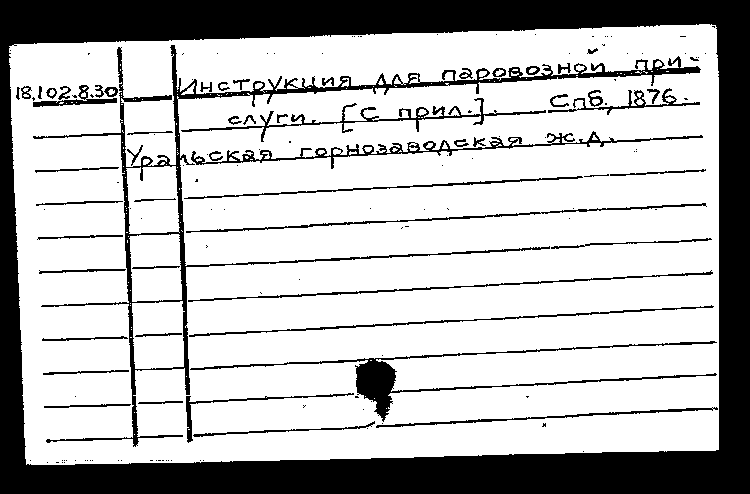 18.102.8.30 Инструкция для паровозной при-
слуги. [С прил.]. Спб., 1876.
Уральская горнозаводская ж.д.